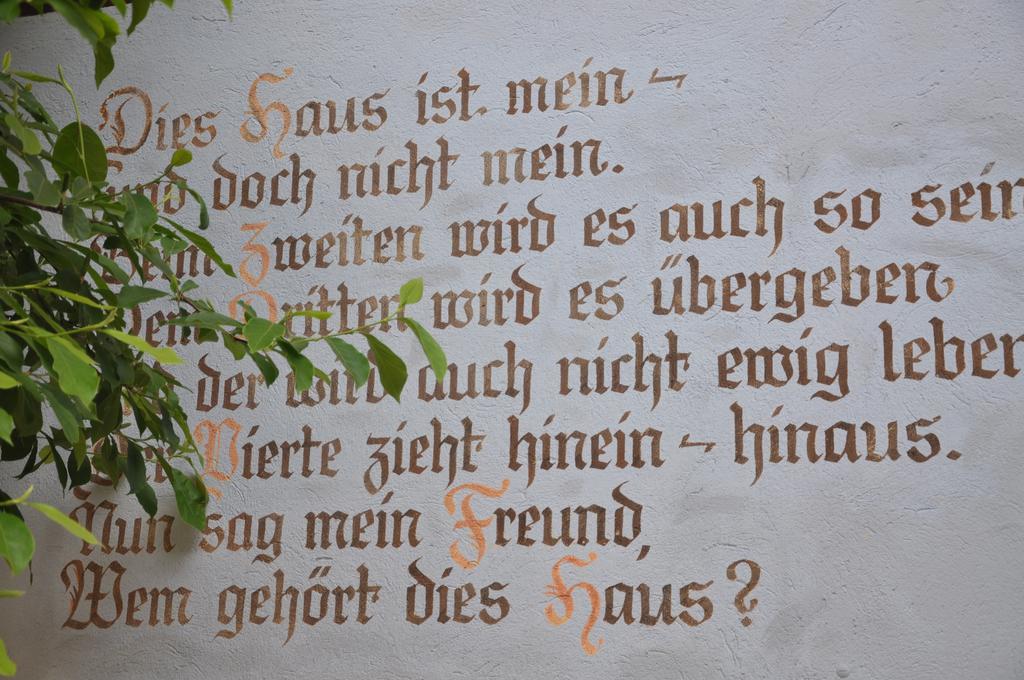 Dies Haus ist mein -
und doch nicht mein.
Dem Zweiten wird es auch so sein
Dem Dritten wird es übergeben
der wird auch nicht ewig leben
Vierte zieht hinein - hinaus.
Nun sag mein Freund,
Wem gehört dies Haus?